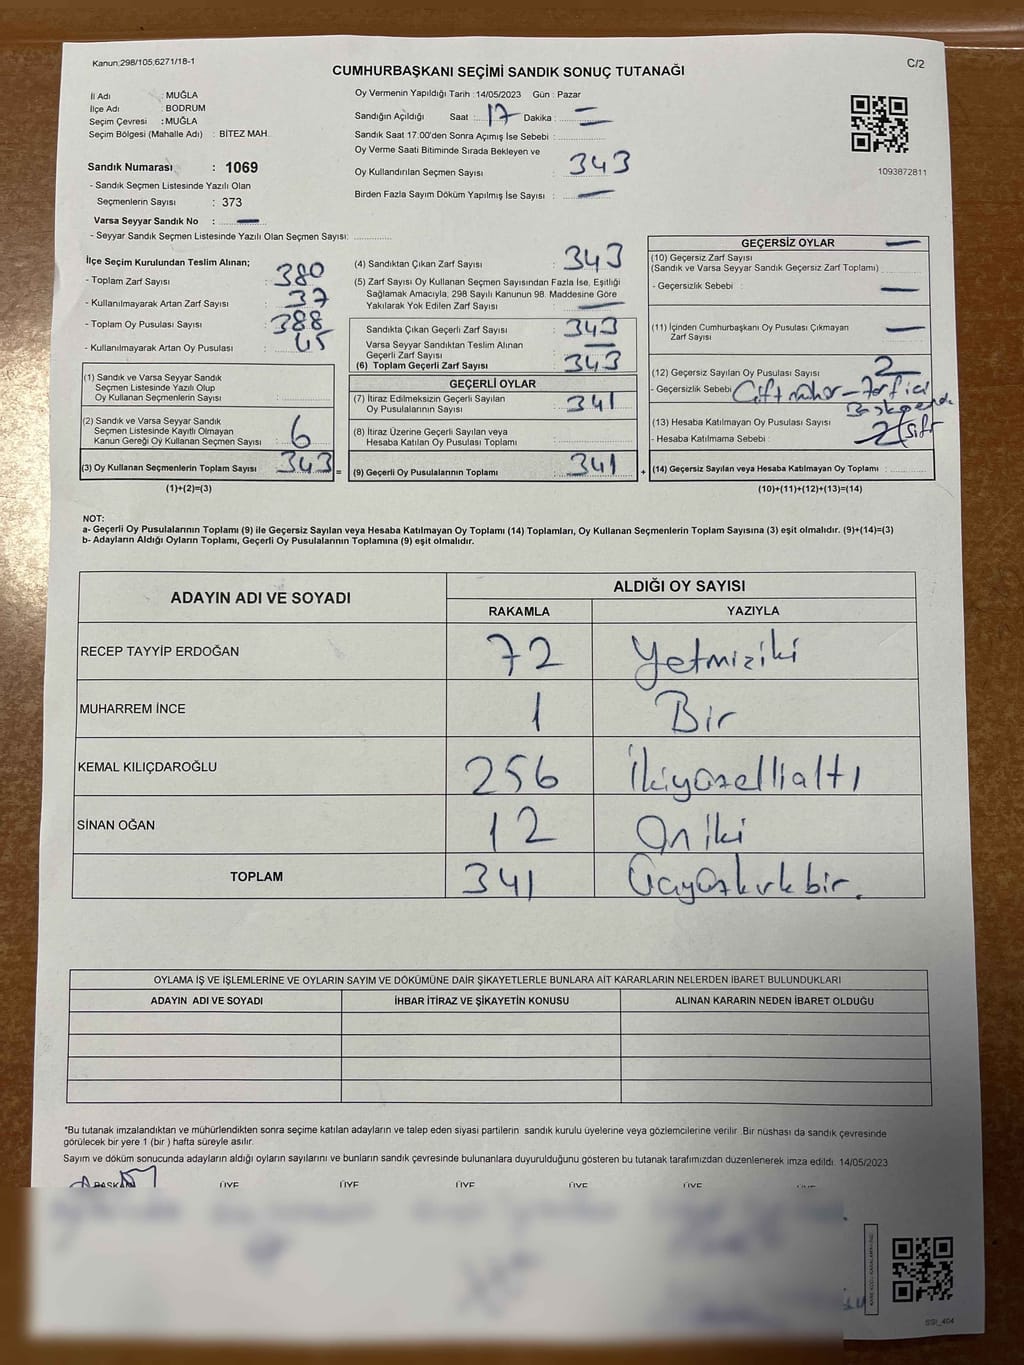 Kanun:298/105,6271/18-1
C/2
CUMHURBAŞKANI SEÇİMİ SANDIK SONUÇ TUTANAĞI
İl Adı : MUĞLA
İlçe Adı : BODRUM
Seçim Çevresi : MUĞLA
Seçim Bölgesi (Mahalle Adı) : BİTEZ MAH.
Sandık Numarası : 1069
- Sandık Seçmen Listesinde Yazılı Olan
Seçmenlerin Sayısı : 373
Varsa Seyyar Sandık No : —
- Seyyar Sandık Seçmen Listesinde Yazılı Olan Seçmen Sayısı:
Oy Vermenin Yapıldığı Tarih : 14/05/2023 Gün : Pazar
Sandığın Açıldığı Saat : 17 Dakika :
Sandık Saat 17:00'den Sonra Açımış İse Sebebi :
Oy Verme Saati Bitiminde Sırada Bekleyen ve
Oy Kullandırılan Seçmen Sayısı : 343
Birden Fazla Sayım Döküm Yapılmış İse Sayısı : —
1093872811
İlçe Seçim Kurulundan Teslim Alınan;
- Toplam Zarf Sayısı : 380
- Kullanılmayarak Artan Zarf Sayısı : 37
- Toplam Oy Pusulası Sayısı : 388
- Kullanılmayarak Artan Oy Pusulası : 45
(1) Sandık ve Varsa Seyyar Sandık
Seçmen Listesinde Yazılı Olup
Oy Kullanan Seçmenlerin Sayısı :
(2) Sandık ve Varsa Seyyar Sandık
Seçmen Listesinde Kayıtlı Olmayan
Kanun Gereği Oy Kullanan Seçmen Sayısı : 6
(3) Oy Kullanan Seçmenlerin Toplam Sayısı : 343 =
(1)+(2)=(3)
(4) Sandıktan Çıkan Zarf Sayısı : 343
(5) Zarf Sayısı Oy Kullanan Seçmen Sayısından Fazla İse, Eşitliği
Sağlamak Amacıyla, 298 Sayılı Kanunun 98. Maddesine Göre
Yakılarak Yok Edilen Zarf Sayısı : —
Sandıkta Çıkan Geçerli Zarf Sayısı : 343
Varsa Seyyar Sandıktan Teslim Alınan
Geçerli Zarf Sayısı : —
(6) Toplam Geçerli Zarf Sayısı : 343
GEÇERLİ OYLAR
(7) İtiraz Edilmeksizin Geçerli Sayılan
Oy Pusulalarının Sayısı : 341
(8) İtiraz Üzerine Geçerli Sayılan veya
Hesaba Katılan Oy Pusulası Toplamı :
(9) Geçerli Oy Pusulalarının Toplamı : 341 +
GEÇERSİZ OYLAR —
(10) Geçersiz Zarf Sayısı
(Sandık ve Varsa Seyyar Sandık Geçersiz Zarf Toplamı)
- Geçersizlik Sebebi : —
(11) İçinden Cumhurbaşkanı Oy Pusulası Çıkmayan
Zarf Sayısı : —
(12) Geçersiz Sayılan Oy Pusulası Sayısı : 2
- Geçersizlik Sebebi : Çift mühür
(13) Hesaba Katılmayan Oy Pusulası Sayısı :
- Hesaba Katılmama Sebebi : 2
(14) Geçersiz Sayılan veya Hesaba Katılmayan Oy Toplamı :
(10)+(11)+(12)+(13)=(14)
NOT:
a- Geçerli Oy Pusulalarının Toplamı (9) ile Geçersiz Sayılan veya Hesaba Katılmayan Oy Toplamı (14) Toplamları, Oy Kullanan Seçmenlerin Toplam Sayısına (3) eşit olmalıdır. (9)+(14)=(3)
b- Adayların Aldığı Oyların Toplamı, Geçerli Oy Pusulalarının Toplamına (9) eşit olmalıdır.
ADAYIN ADI VE SOYADI
ALDIĞI OY SAYISI
RAKAMLA YAZIYLA
RECEP TAYYİP ERDOĞAN 72 Yetmişiki
MUHARREM İNCE 1 Bir
KEMAL KILIÇDAROĞLU 256 İkiyüzellialtı
SİNAN OĞAN 12 Oniki
TOPLAM 341 Üçyüzkırkbir.
OYLAMA İŞ VE İŞLEMLERİNE VE OYLARIN SAYIM VE DÖKÜMÜNE DAİR ŞİKAYETLERLE BUNLARA AİT KARARLARIN NELERDEN İBARET BULUNDUKLARI
ADAYIN ADI VE SOYADI İHBAR İTİRAZ VE ŞİKAYETİN KONUSU ALINAN KARARIN NEDEN İBARET OLDUĞU
*Bu tutanak imzalandıktan ve mühürlendikten sonra seçime katılan adayların ve talep eden siyasi partilerin sandık kurulu üyelerine veya gözlemcilerine verilir. Bir nüshası da sandık çevresinde
görülecek bir yere 1 (bir ) hafta süreyle asılır.
Sayım ve döküm sonucunda adayların aldığı oyların sayılarını ve bunların sandık çevresinde bulunanlara duyurulduğunu gösteren bu tutanak tarafımızdan düzenlenerek imza edildi. 14/05/2023
BAŞKAN ÜYE ÜYE ÜYE ÜYE ÜYE
SSI_404